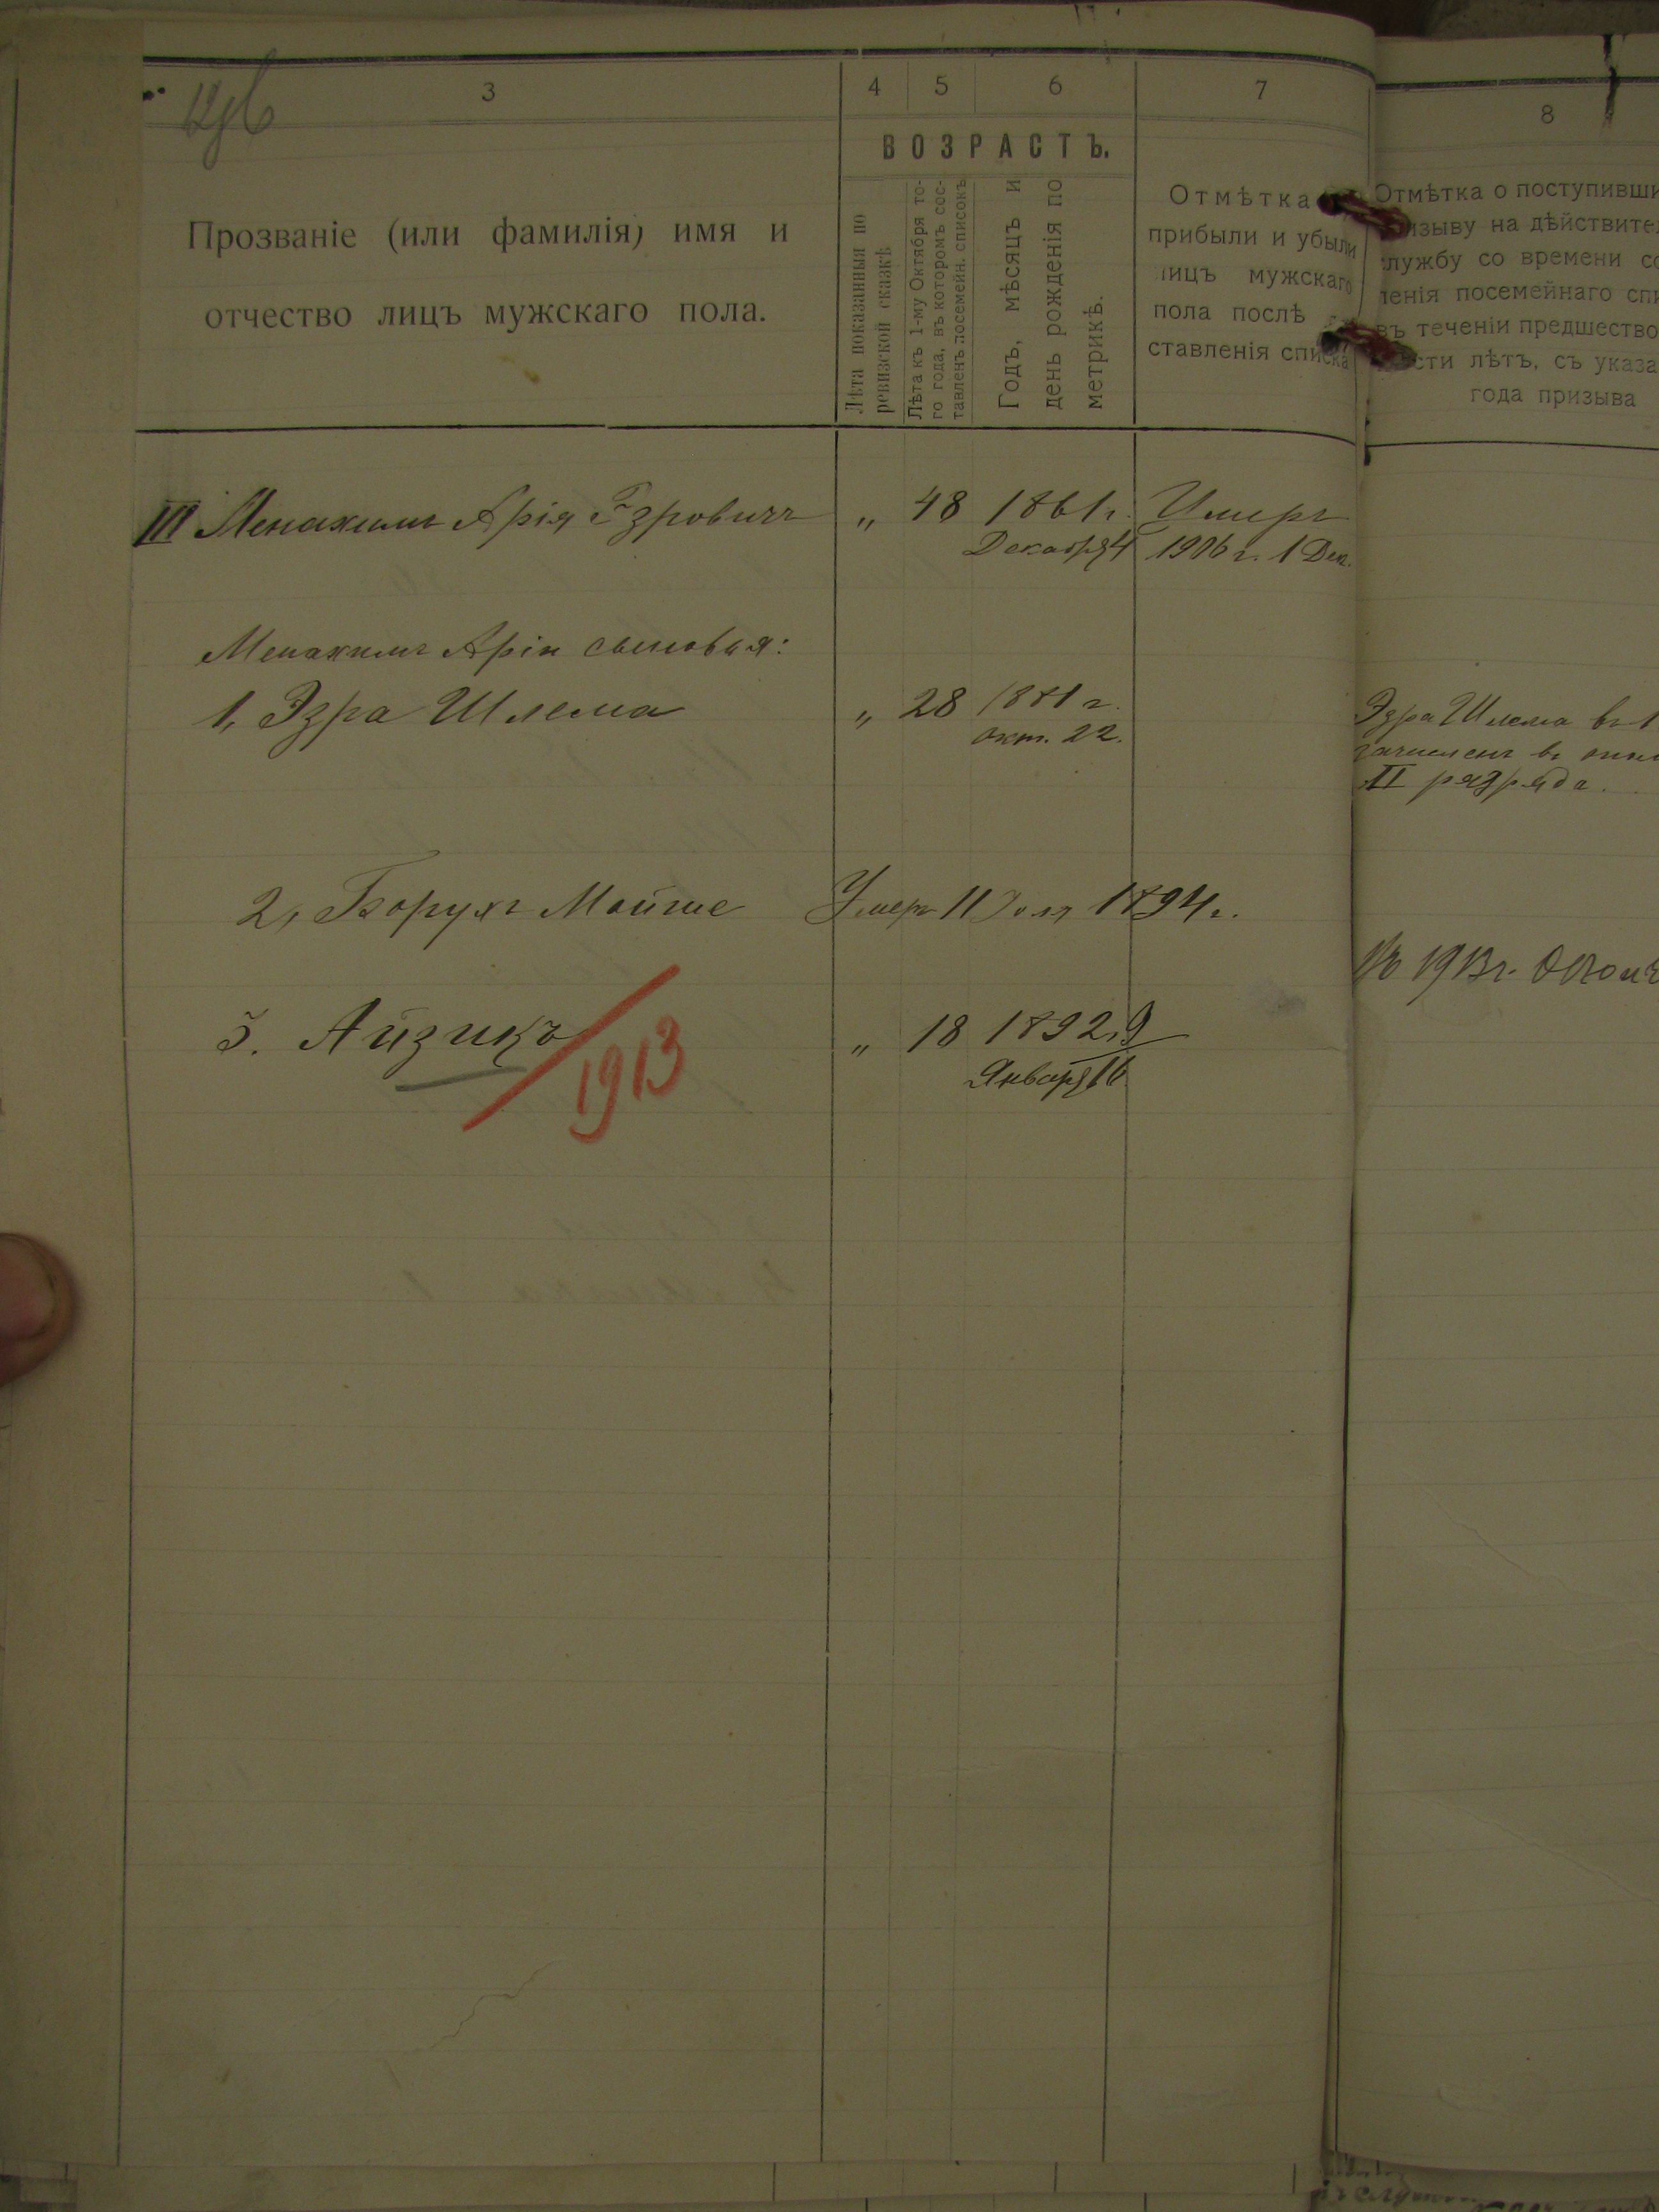 3
4 5 6
7
8
ВОЗРАСТЪ.
Прозваніе (или фамилія) имя и
отчество лицъ мужскаго пола.
Лѣта показанныя по
ревизской сказкѣ
Лѣта къ 1-му Октября то-
го года, въ которомъ сос-
тавленъ посемейн. списокъ
Годъ, мѣсяцъ и
день рожденія по
метрикѣ.
Отмѣтка
прибыли и убыли
лицъ мужскаго
пола послѣ
ставленія списка
Отмѣтка о поступивши
изыву на дѣйствите
службу со времени со
ленія посемейнаго спи
въ теченіи предшество
сти лѣтъ, съ указа
года призыва
III Менахимъ Арія Эзровичъ „ 48 1861 г. Умеръ
Декабря 4 1906 г. 1 Дек.
Менахимъ Арія сыновья:
1, Эзра Шлема „ 28 1881 г.
окт. 22.
Эзра Шлема въ 1
зачисленъ въ
II разряда.
2, Борухъ Мойше Умеръ 11 Іюля 1894 г.
Въ 1913 г.
3. Айзикъ „ 18 1892 г.
Января 16
1913